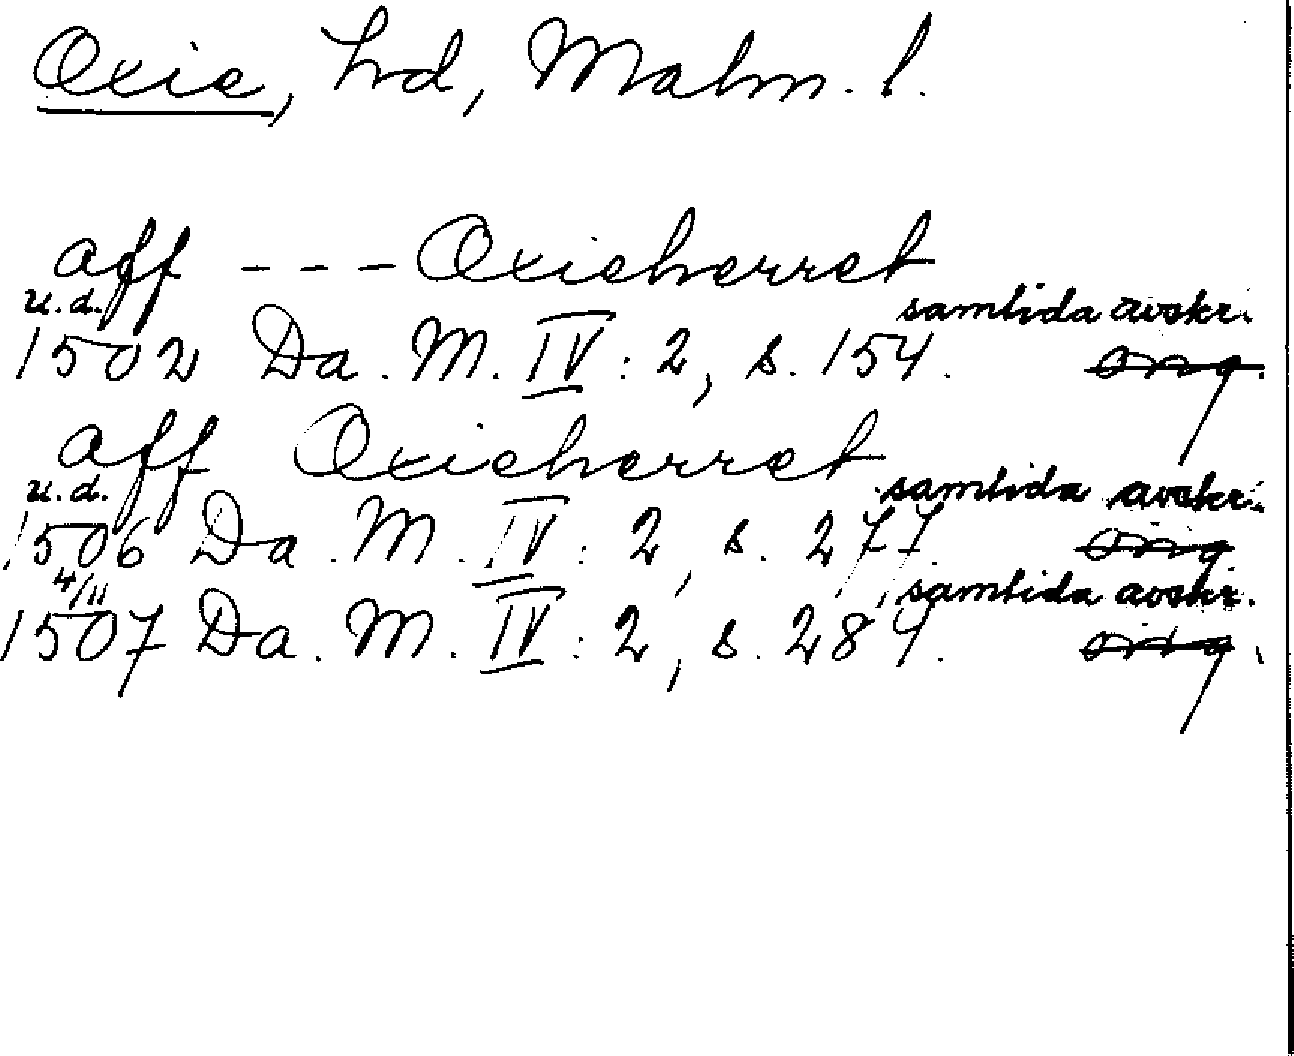 Oxie, hd, Malm. l.
aff - - - Oxieherret
u.d. samtida avskr.
1502 Da. M. IV: 2, s. 154. orig.
aff Oxieherret
u.d. samtida avskr.
1506 Da. M. IV: 2, s. 277. orig
4/11 samtida avskr.
1507 Da. M. IV: 2, s. 289. orig.